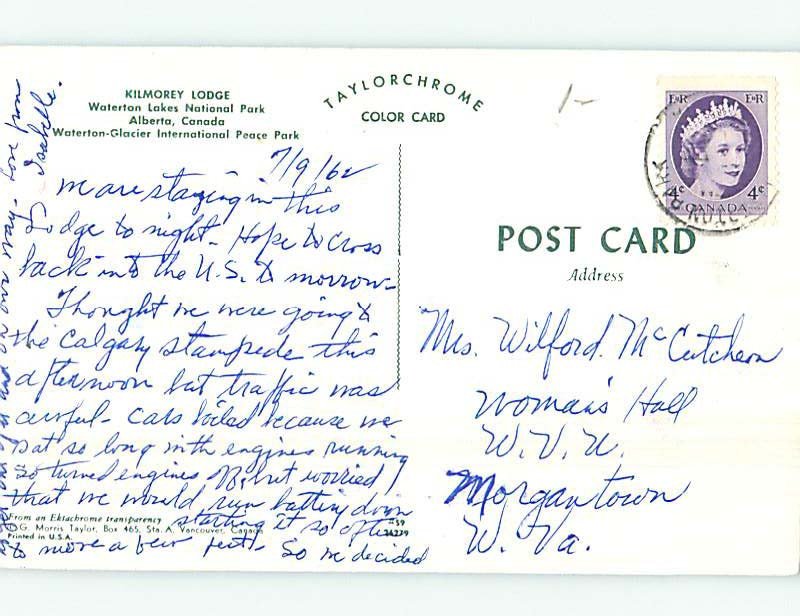 KILMOREY LODGE
Waterton Lakes National Park
Alberta, Canada
Waterton-Glacier International Peace Park
TAYLORCHROME
COLOR CARD
7/9/62
We are staying in this
Lodge to night - Hope to cross
back into the U.S. to morrow -
Thought we were going to
the Calgary stampede this
afternoon but traffic was
awful - Cars boiled because we
sat so long with engines running
So turned engines off but worried
that we would run battery down
starting it so often
to move a few feet - So we decided
and on our way - Love from
Isabelle.
From an Ektachrome transparency
G. Morris Taylor, Box 465, Sta. A, Vancouver, Canada
Printed in U.S.A.
E R E R
4¢ 4¢
CANADA
POST CARD
Address
Mrs. Wilford McCutcheon
Woman's Hall
W.V.U.
Morgantown
W. Va.